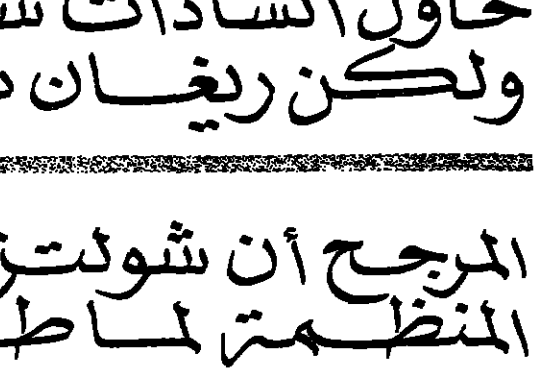 حاول السادات
ولكن ريغان
المرجح أن شولتز
المنظمة لماط